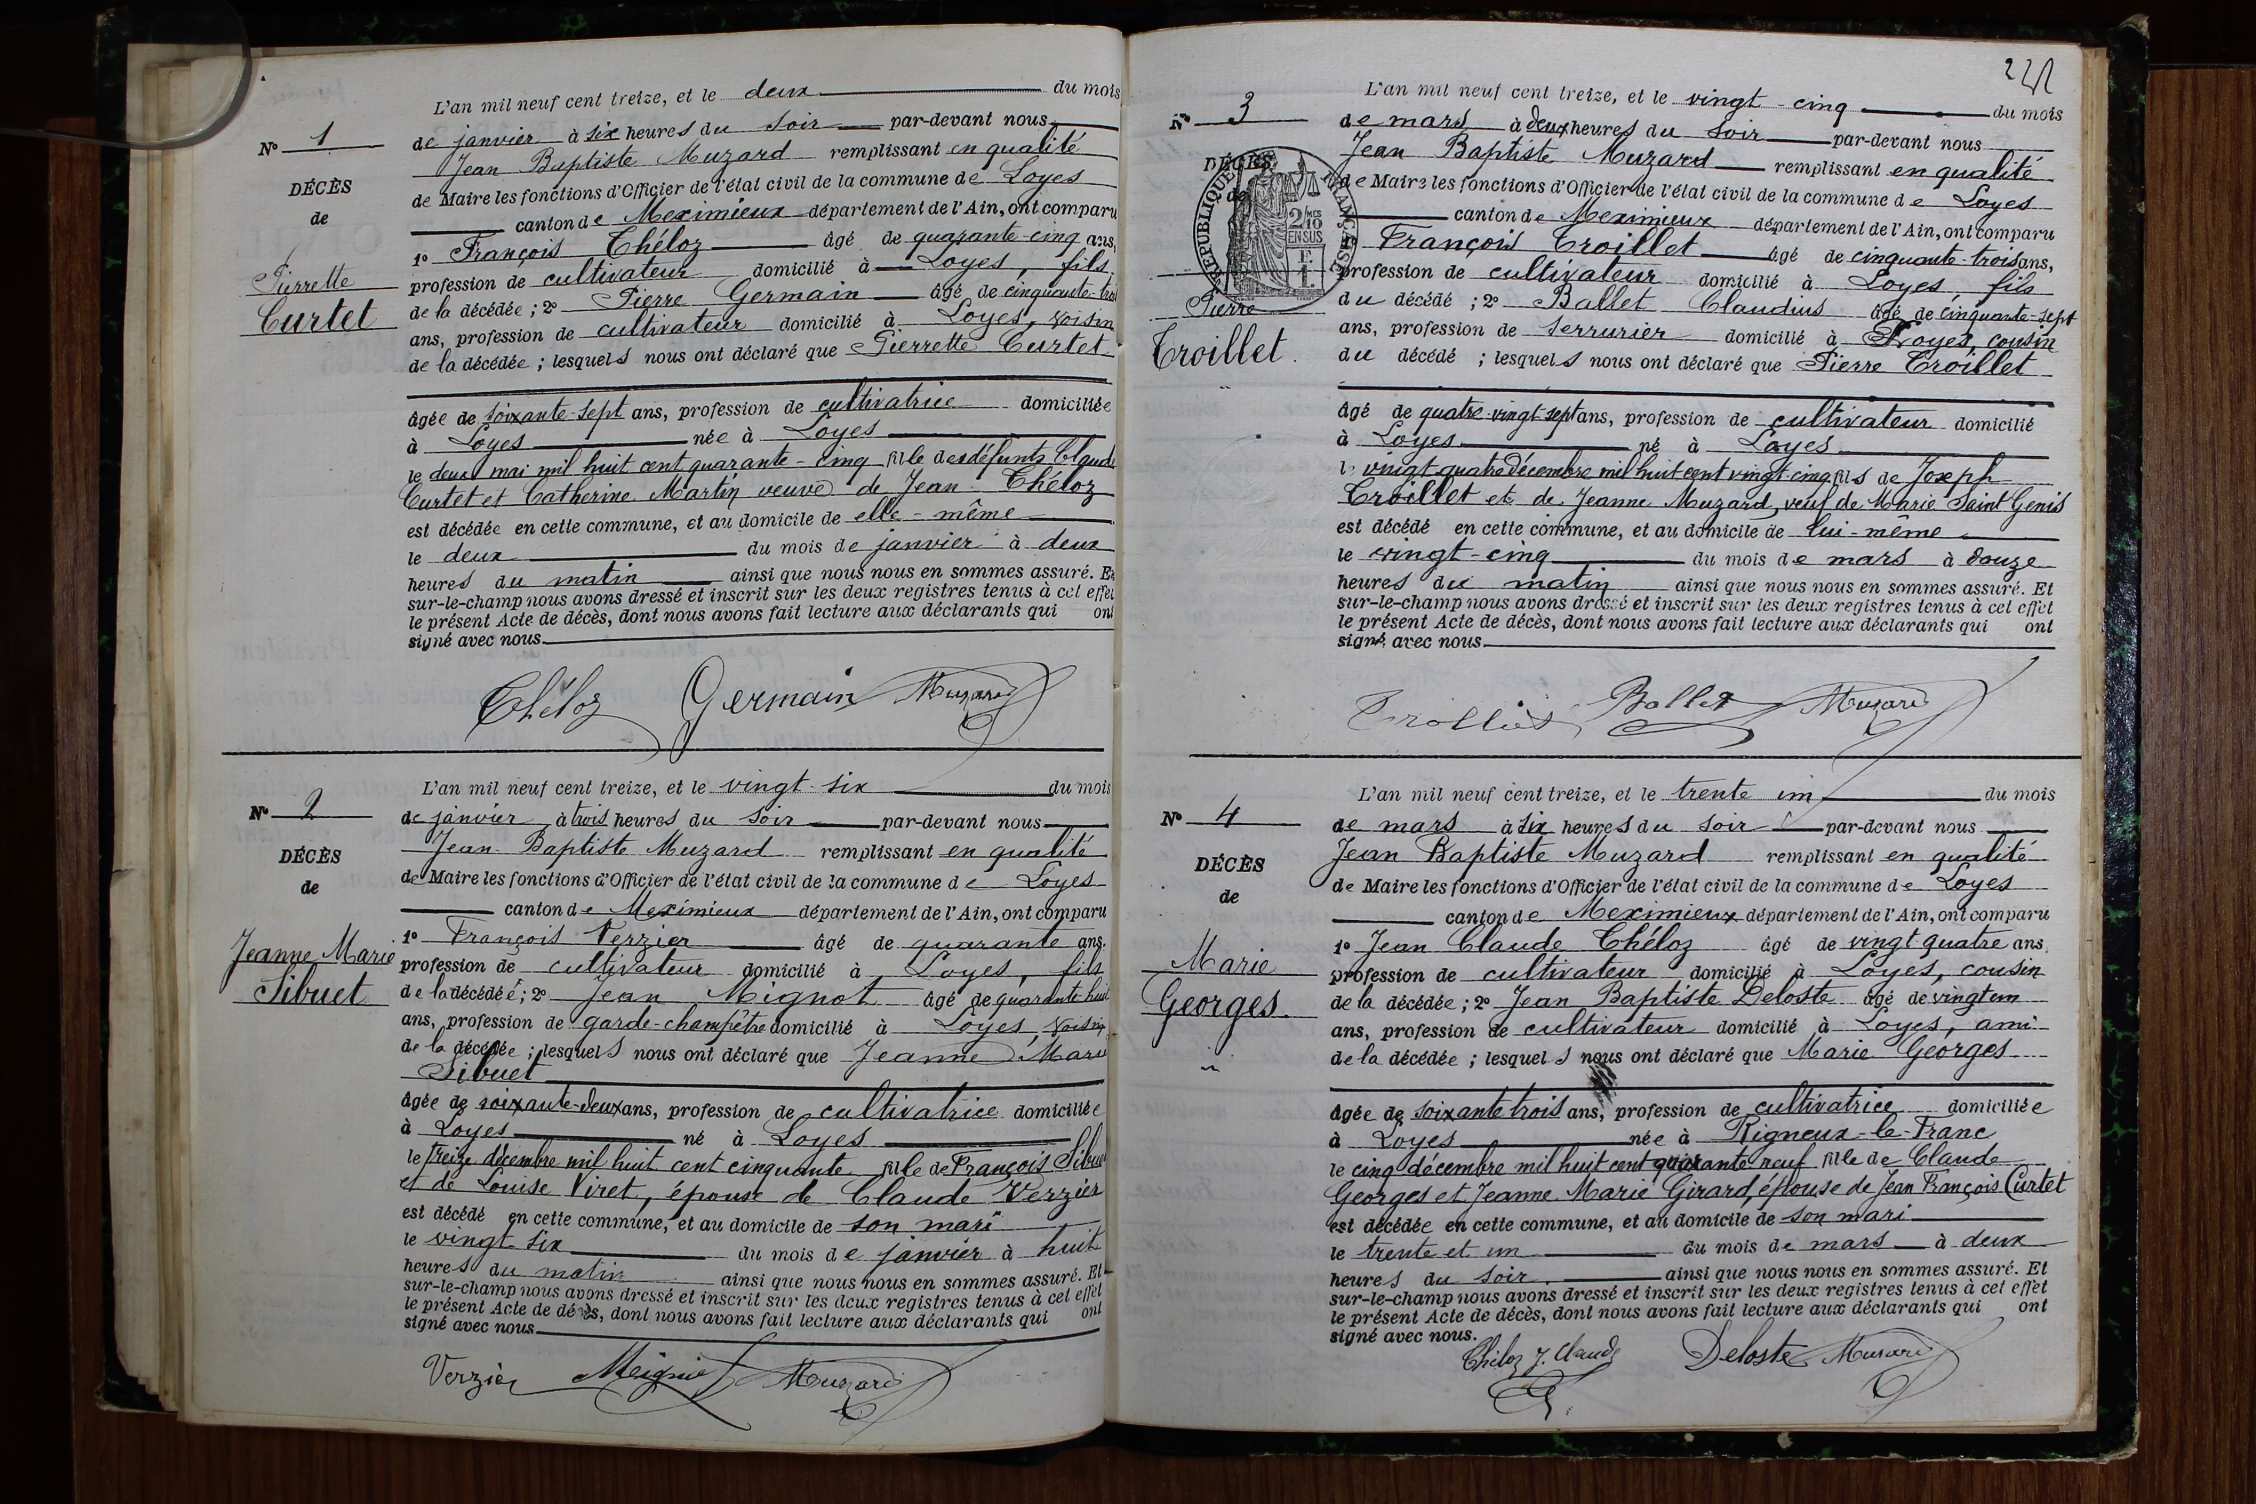 L'an mil neuf cent treize, et le deux du mois
No 1
de janvier à six heures du soir par-devant nous
Jean Baptiste Muzard remplissant en qualité
DÉCÈS
de Maire les fonctions d'Officier de l'état civil de la commune de Loyes
de
canton de Meximieux département de l'Ain, ont comparu
1o François Théloz âgé de quarante-cinq ans,
Pierrette
profession de cultivateur domicilié à Loyes, fils
Curtet
de la décédée ; 2o Pierre Germain âgé de cinquante-trois
ans, profession de cultivateur domicilié à Loyes, voisin
de la décédée ; lesquels nous ont déclaré que Pierrette Curtet
âgée de soixante-sept ans, profession de cultivatrice domiciliée
à Loyes née à Loyes
le deux mai mil huit cent quarante-cinq fille des défunts Claude
Curtet et Catherine Martin veuve de Jean Théloz
est décédée en cette commune, et au domicile de elle-même
le deux du mois de janvier à deux
heures du matin ainsi que nous nous en sommes assuré. Et
sur-le-champ nous avons dressé et inscrit sur les deux registres tenus à cet effet
le présent Acte de décès, dont nous avons fait lecture aux déclarants qui ont
signé avec nous
Théloz Germain Muzard
L'an mil neuf cent treize, et le vingt-six du mois
No 2
de janvier à trois heures du soir par-devant nous
Jean Baptiste Muzard remplissant en qualité
DÉCÈS
de Maire les fonctions d'Officier de l'état civil de la commune de Loyes
de
canton de Meximieux département de l'Ain, ont comparu
1o François Verzier âgé de quarante ans.
Jeanne Marie
profession de cultivateur domicilié à Loyes, fils
Sibuet
de la décédée ; 2o Jean Mignot âgé de quarante huit
ans, profession de garde-champêtre domicilié à Loyes, voisin
de la décédée ; lesquels nous ont déclaré que Jeanne Marie
Sibuet
âgée de soixante-deux ans, profession de cultivatrice domiciliée
à Loyes né à Loyes
le treize décembre mil huit cent cinquante fille de François Sibuet
et de Louise Viret, épouse de Claude Verzier
est décédé en cette commune, et au domicile de son mari
le vingt-six du mois de janvier à huit
heures du matin ainsi que nous nous en sommes assuré. Et
sur-le-champ nous avons dressé et inscrit sur les deux registres tenus à cet effet
le présent Acte de décès, dont nous avons fait lecture aux déclarants qui ont
signé avec nous
Verzier Muzard
L'an mil neuf cent treize, et le vingt-cinq du mois
No 3
de mars à deux heures du soir par-devant nous
Jean Baptiste Muzard remplissant en qualité
DÉCÈS
de Maire les fonctions d'Officier de l'état civil de la commune de Loyes
de
RÉPUBLIQUE FRANÇAISE
2/10 MES
EN SUS
1 F.
canton de Meximieux département de l'Ain, ont comparu
François Troillet âgé de cinquante-trois ans,
profession de cultivateur domicilié à Loyes, fils
Pierre
du décédé ; 2o Ballet Claudius âgé de cinquante-sept
Troillet.
ans, profession de serrurier domicilié à Loyes, cousin
du décédé ; lesquels nous ont déclaré que Pierre Troillet
âgé de quatre-vingt-sept ans, profession de cultivateur domicilié
à Loyes né à Loyes
le vingt-quatre décembre mil huit cent vingt-cinq fils de Joseph
Troillet et de Jeanne Muzard, veuf de Marie Saint Genis
est décédé en cette commune, et au domicile de lui-même
le vingt-cinq du mois de mars à douze
heures du matin ainsi que nous nous en sommes assuré. Et
sur-le-champ nous avons dressé et inscrit sur les deux registres tenus à cet effet
le présent Acte de décès, dont nous avons fait lecture aux déclarants qui ont
signé avec nous
Ballet Muzard
L'an mil neuf cent treize, et le trente un du mois
No 4
de mars à six heures du soir par-devant nous
Jean Baptiste Muzard remplissant en qualité
DÉCÈS
de Maire les fonctions d'Officier de l'état civil de la commune de Loyes
de
canton de Meximieux département de l'Ain, ont comparu
1o Jean Claude Théloz âgé de vingt quatre ans
Marie
profession de cultivateur domicilié à Loyes, cousin
Georges.
de la décédée ; 2o Jean Baptiste Deloste âgé de vingt un
ans, profession de cultivateur domicilié à Loyes, ami
de la décédée ; lesquels nous ont déclaré que Marie Georges
âgée de soixante trois ans, profession de cultivatrice domiciliée
à Loyes née à Rigneux-le-Franc
le cinq décembre mil huit cent quarante neuf fille de Claude
Georges et Jeanne Marie Girard, épouse de Jean François Curtet
est décédée en cette commune, et au domicile de son mari
le trente et un du mois de mars à deux
heures du soir. ainsi que nous nous en sommes assuré. Et
sur-le-champ nous avons dressé et inscrit sur les deux registres tenus à cet effet
le présent Acte de décès, dont nous avons fait lecture aux déclarants qui ont
signé avec nous.
Théloz J. Claude Deloste Muzard